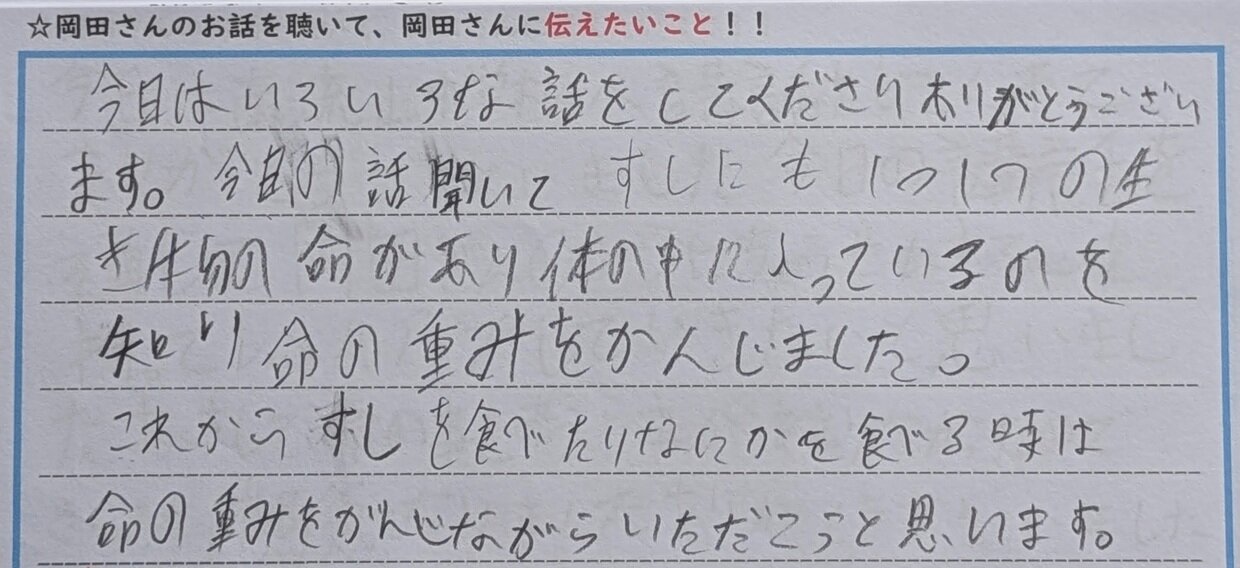 ☆岡田さんのお話を聴いて、岡田さんに伝えたいこと！！
今日はいろいろな話をしてくださりありがとうござい
ます。今日の話聞いて すしにも1つ1つの生
き物の命があり体の中に入っているのを
知り命の重みをかんじました。
これからすしを食べたりなにかを食べる時は
命の重みをかんじながらいただこうと思います。